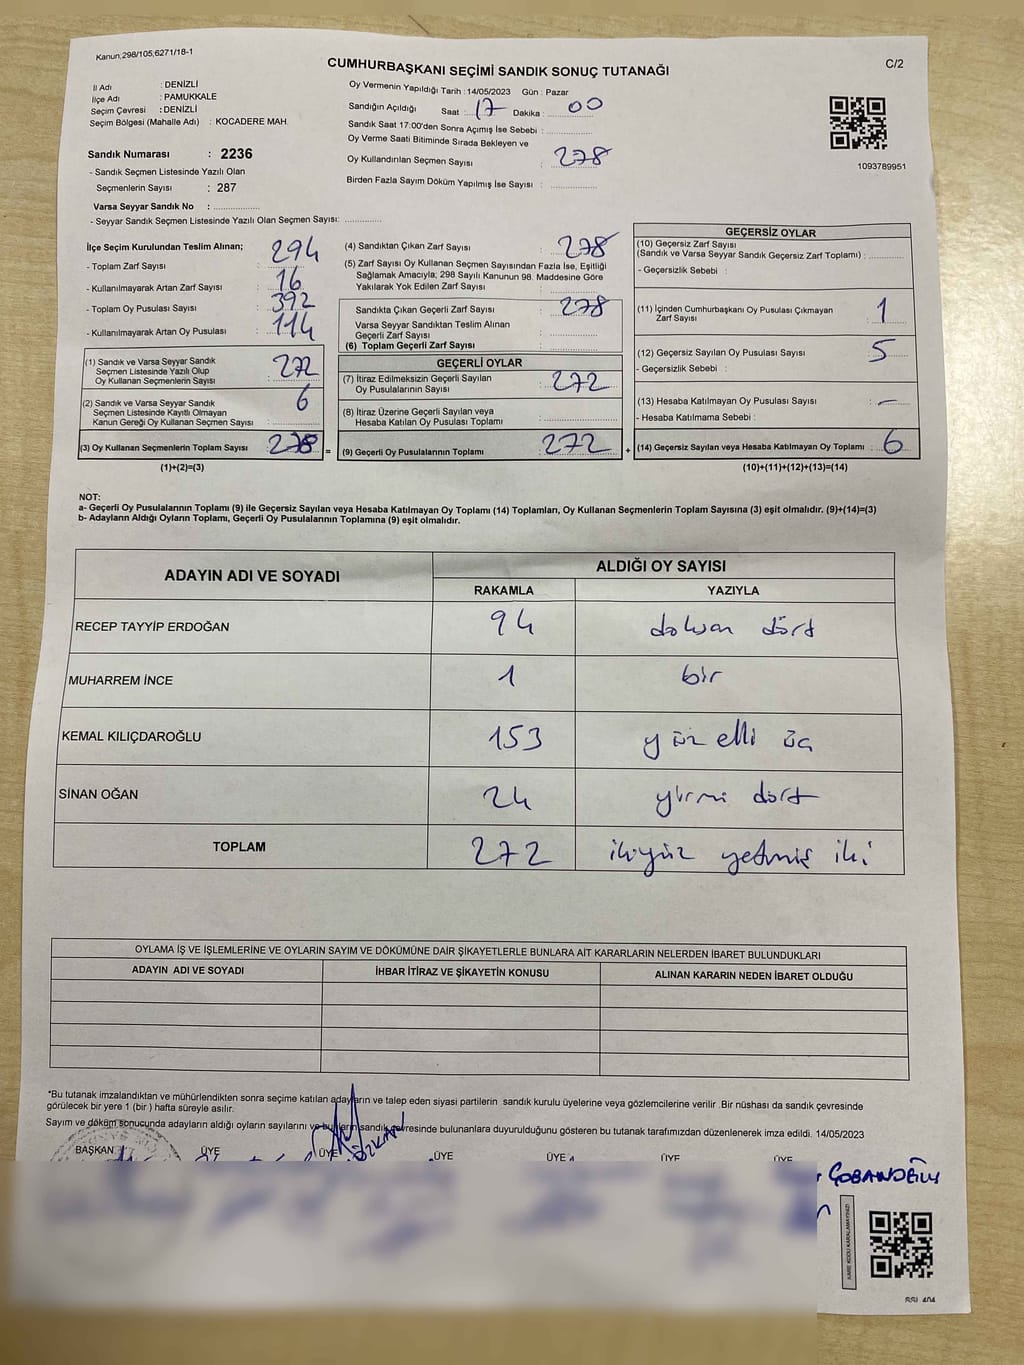 Kanun,298/105,6271/18-1
CUMHURBAŞKANI SEÇİMİ SANDIK SONUÇ TUTANAĞI
C/2
İl Adı : DENİZLİ
İlçe Adı : PAMUKKALE
Seçim Çevresi : DENİZLİ
Seçim Bölgesi (Mahalle Adı) : KOCADERE MAH.
Sandık Numarası : 2236
- Sandık Seçmen Listesinde Yazılı Olan
Seçmenlerin Sayısı : 287
Varsa Seyyar Sandık No :
- Seyyar Sandık Seçmen Listesinde Yazılı Olan Seçmen Sayısı:
Oy Vermenin Yapıldığı Tarih : 14/05/2023 Gün : Pazar
Sandığın Açıldığı Saat : 17 Dakika : 00
Sandık Saat 17:00'den Sonra Açımış İse Sebebi :
Oy Verme Saati Bitiminde Sırada Bekleyen ve
Oy Kullandırılan Seçmen Sayısı : 278
Birden Fazla Sayım Döküm Yapılmış İse Sayısı :
1093789951
İlçe Seçim Kurulundan Teslim Alınan;
- Toplam Zarf Sayısı : 294
- Kullanılmayarak Artan Zarf Sayısı : 16
- Toplam Oy Pusulası Sayısı : 392
- Kullanılmayarak Artan Oy Pusulası : 114
(1) Sandık ve Varsa Seyyar Sandık
Seçmen Listesinde Yazılı Olup
Oy Kullanan Seçmenlerin Sayısı : 272
(2) Sandık ve Varsa Seyyar Sandık
Seçmen Listesinde Kayıtlı Olmayan
Kanun Gereği Oy Kullanan Seçmen Sayısı : 6
(3) Oy Kullanan Seçmenlerin Toplam Sayısı : 278
(1)+(2)=(3)
=
(4) Sandıktan Çıkan Zarf Sayısı : 278
(5) Zarf Sayısı Oy Kullanan Seçmen Sayısından Fazla İse, Eşitliği
Sağlamak Amacıyla; 298 Sayılı Kanunun 98. Maddesine Göre
Yakılarak Yok Edilen Zarf Sayısı :
Sandıkta Çıkan Geçerli Zarf Sayısı : 278
Varsa Seyyar Sandıktan Teslim Alınan
Geçerli Zarf Sayısı :
(6) Toplam Geçerli Zarf Sayısı :
GEÇERLİ OYLAR
(7) İtiraz Edilmeksizin Geçerli Sayılan
Oy Pusulalarının Sayısı : 272
(8) İtiraz Üzerine Geçerli Sayılan veya
Hesaba Katılan Oy Pusulası Toplamı :
(9) Geçerli Oy Pusulalarının Toplamı : 272
+
GEÇERSİZ OYLAR
(10) Geçersiz Zarf Sayısı
(Sandık ve Varsa Seyyar Sandık Geçersiz Zarf Toplamı) :
- Geçersizlik Sebebi :
(11) İçinden Cumhurbaşkanı Oy Pusulası Çıkmayan
Zarf Sayısı : 1
(12) Geçersiz Sayılan Oy Pusulası Sayısı : 5
- Geçersizlik Sebebi :
(13) Hesaba Katılmayan Oy Pusulası Sayısı : -
- Hesaba Katılmama Sebebi :
(14) Geçersiz Sayılan veya Hesaba Katılmayan Oy Toplamı : 6
(10)+(11)+(12)+(13)=(14)
NOT:
a- Geçerli Oy Pusulalarının Toplamı (9) ile Geçersiz Sayılan veya Hesaba Katılmayan Oy Toplamı (14) Toplamları, Oy Kullanan Seçmenlerin Toplam Sayısına (3) eşit olmalıdır. (9)+(14)=(3)
b- Adayların Aldığı Oyların Toplamı, Geçerli Oy Pusulalarının Toplamına (9) eşit olmalıdır.
ADAYIN ADI VE SOYADI
ALDIĞI OY SAYISI
RAKAMLA YAZIYLA
RECEP TAYYİP ERDOĞAN 94 doksan dört
MUHARREM İNCE 1 bir
KEMAL KILIÇDAROĞLU 153 yüz elli üç
SİNAN OĞAN 24 yirmi dört
TOPLAM 272 ikiyüz yetmiş iki
OYLAMA İŞ VE İŞLEMLERİNE VE OYLARIN SAYIM VE DÖKÜMÜNE DAİR ŞİKAYETLERLE BUNLARA AİT KARARLARIN NELERDEN İBARET BULUNDUKLARI
ADAYIN ADI VE SOYADI İHBAR İTİRAZ VE ŞİKAYETİN KONUSU ALINAN KARARIN NEDEN İBARET OLDUĞU
*Bu tutanak imzalandıktan ve mühürlendikten sonra seçime katılan adayların ve talep eden siyasi partilerin sandık kurulu üyelerine veya gözlemcilerine verilir .Bir nüshası da sandık çevresinde
görülecek bir yere 1 (bir ) hafta süreyle asılır.
Sayım ve döküm sonucunda adayların aldığı oyların sayılarını ve bunların sandık çevresinde bulunanlara duyurulduğunu gösteren bu tutanak tarafımızdan düzenlenerek imza edildi. 14/05/2023
BAŞKAN ÜYE ÜYE ÜYE ÜYE ÜYE ÜYE
ÇOBANOĞLU
KARE KODU KARALAMAYINIZ!